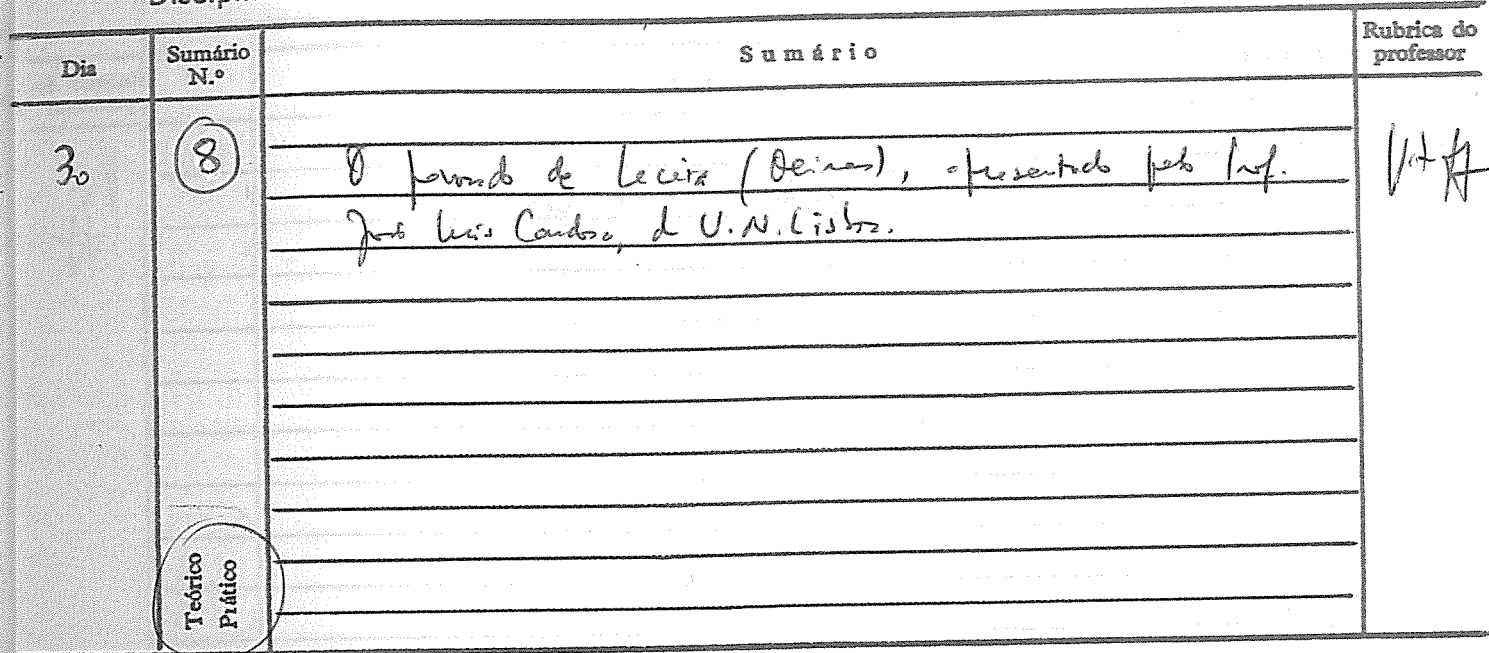 Dia
Sumário N.º
Sumário
Rubrica do professor
30
8
O povoado de Leceia (Oeiras), apresentado pelo Prof.
José Luís Cardoso, da U.N. Lisboa.
Teórico
Prático